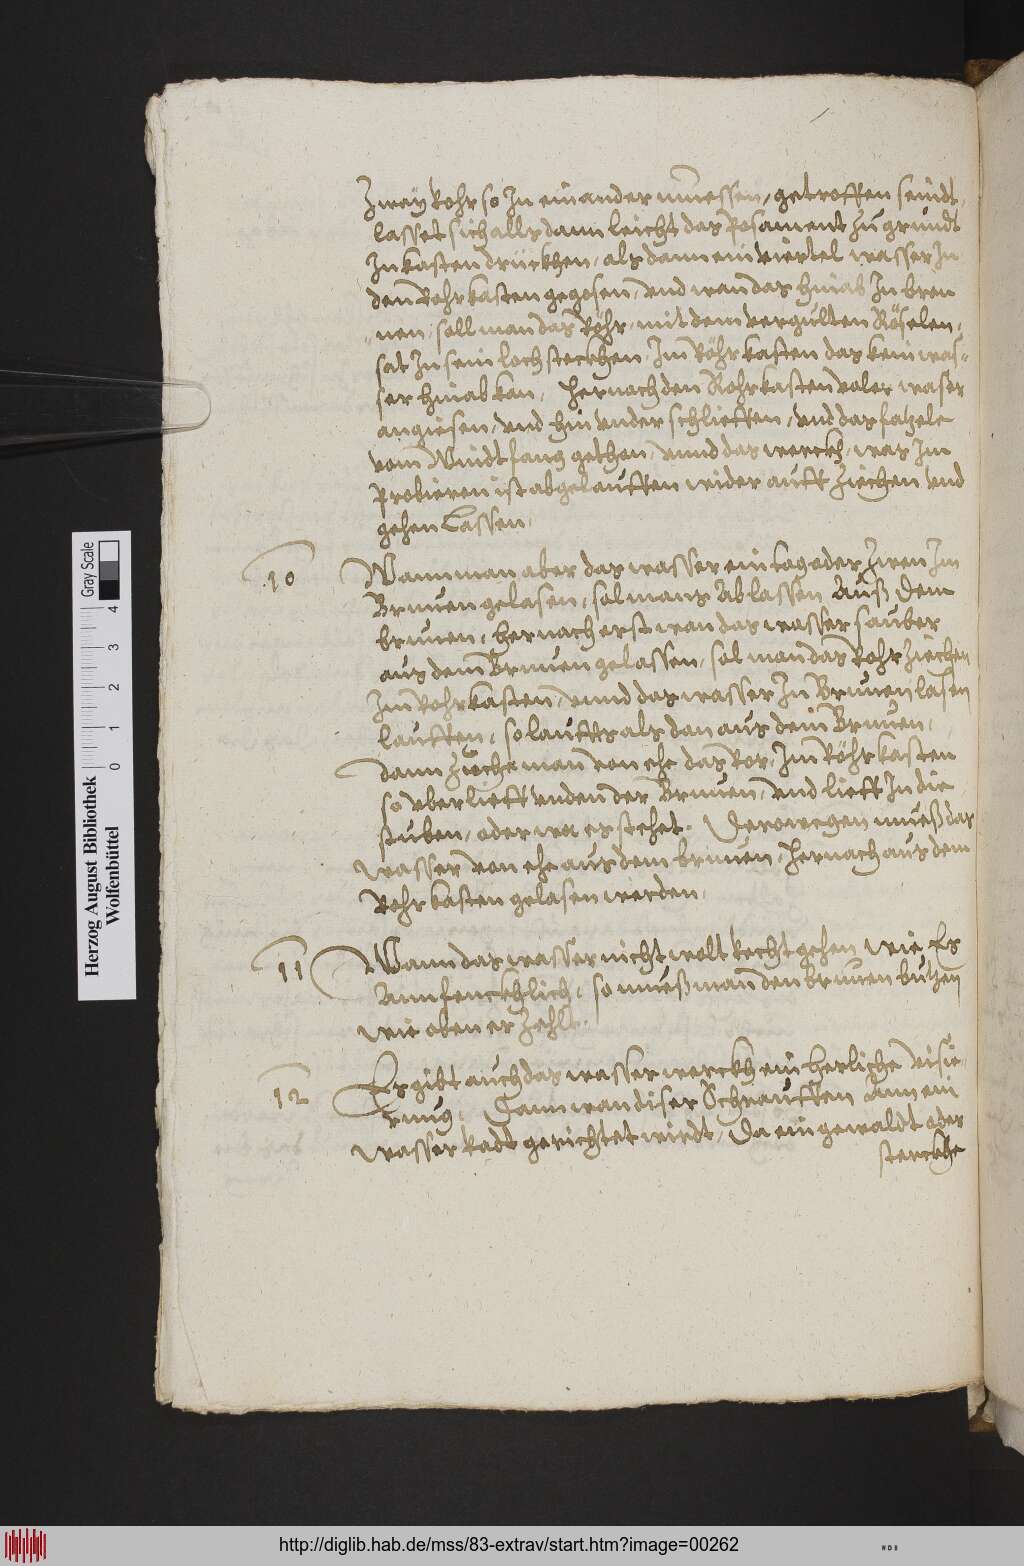 Zway Rohr so In einander müessen, getroffen seindt,
lasset sich allsdann leicht das Posament zu grundt
In kasten drückhen, als dann ein viertel wasser In
den Rohrkasten gegosen, vnd wan das hinab In bron
nen, soll man das Röhr, mit dem vergulten Röselen,
sat In sein loch steckhen, Im Röhr kasten das kein was-
ser hinab kan, Hernach den Rohrkasten voler waser
angiesen, vnd hin vnder schlieffen, vnd das
vom Windtfang gethon, vnnd das werckh, was Im
probieren ist abgelauffen wider auff Ziechen vnd
gehen Lassen,
10 Wann man aber das wasser ein tag oder Zwen Im
Brunen gelasen, sol mans Ablassen Auß dem
brunen, hernach erst wan das wasser sauber
aus dem Brunen gelassen, sol man das Rohr Ziechen
Im Rohrkasten, vnnd das wasser In Brunen lasen
lauffen, so lauffts als dan aus dem Brunen,
dann Zieche man von ehe das Ror, Im Röhr kasten
so vberlieff vnden der Brunen, vnd lieff In die
stuben, oder wa es stehet. Derowegen mueß das
wasser von ehe aus dem brunen, hernach aus dem
Rohr kasten gelasen werden,
11 Wann das wasser nicht wolt Recht gehen wie Es
Annfenckhlich, so mueß man den brunen butzen
wie oben er Zehlt.
12 Es gibt auch das wasser werckh ein herliche visie
rung, Dann wan diser Schrauffen Ann ein
wasser Radt gerichtet wirdt, Da ein gewaldt oder
sterckhe
Herzog August Bibliothek
Wolfenbüttel
0 1 2 3 4
Gray Scale
http://diglib.hab.de/mss/83-extrav/start.htm?image=00262